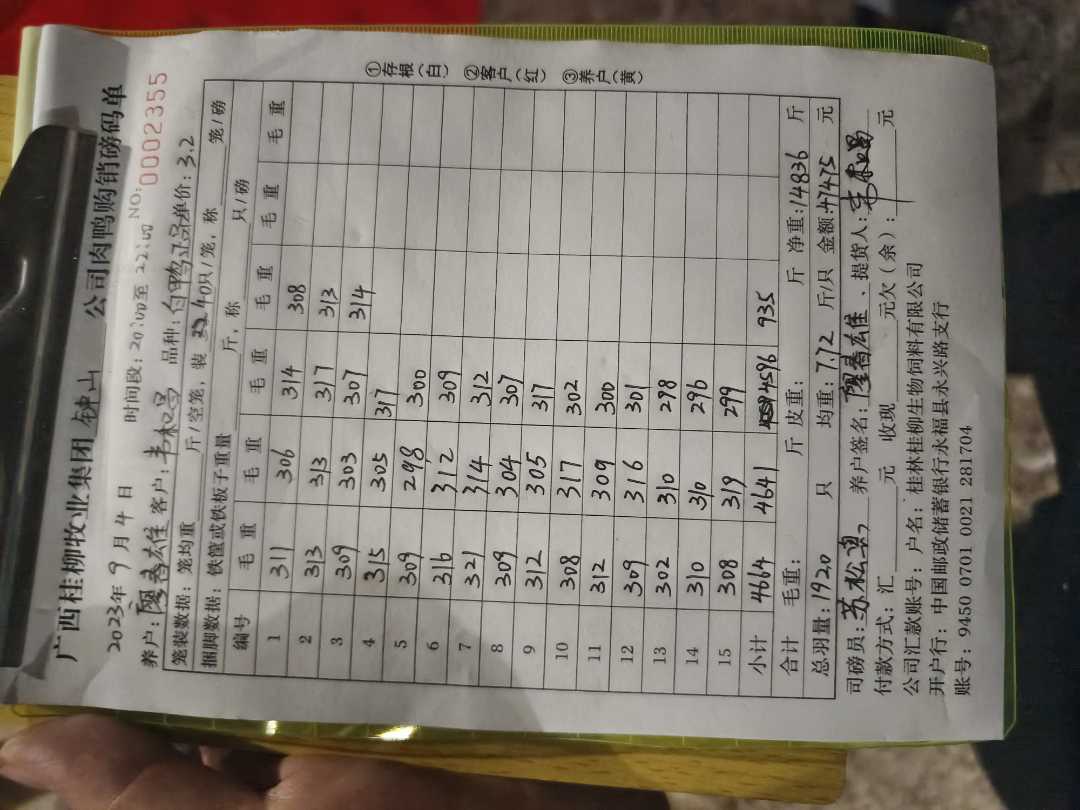 广西桂柳牧业集团 钟山 公司肉鸭购销磅码单
2023年 9 月 4 日 时间段: 20:00至 22:00 NO: 0002355
养户: 客户: 品种: 单价: 3.2
笼装数据: 笼均重 斤/空笼, 装 40只/笼, 称 笼/磅
捆脚数据: 铁筐或铁板子重量 斤, 称 只/磅
编号 毛 重 毛 重 毛 重 毛 重 毛 重 毛 重
1 311 306 314 308
2 313 313 317 313
3 309 303 307 314
4 315 305 317
5 309 298 300
6 316 312 309
7 321 314 312
8 309 304 307
9 312 305 317
10 308 317 302
11 312 309 300
12 309 316 301
13 302 310 298
14 310 310 296
15 308 319 299
小计 4664 4641 4596 935
合计 毛重: 斤 皮重: 斤 净重: 14836 斤
总羽量: 1920 只 均重: 7.72 斤/只 金额: 47475 元
司磅员: 养户签名: 、提货人:
付款方式: 汇 元 收现 元欠(余): 元
公司汇款账号: 户名: 桂林桂柳生物饲料有限公司
开户行: 中国邮政储蓄银行永福县永兴路支行
账号: 9450 0701 0021 281704
①存根(白) ②客户(红) ③养户(黄)